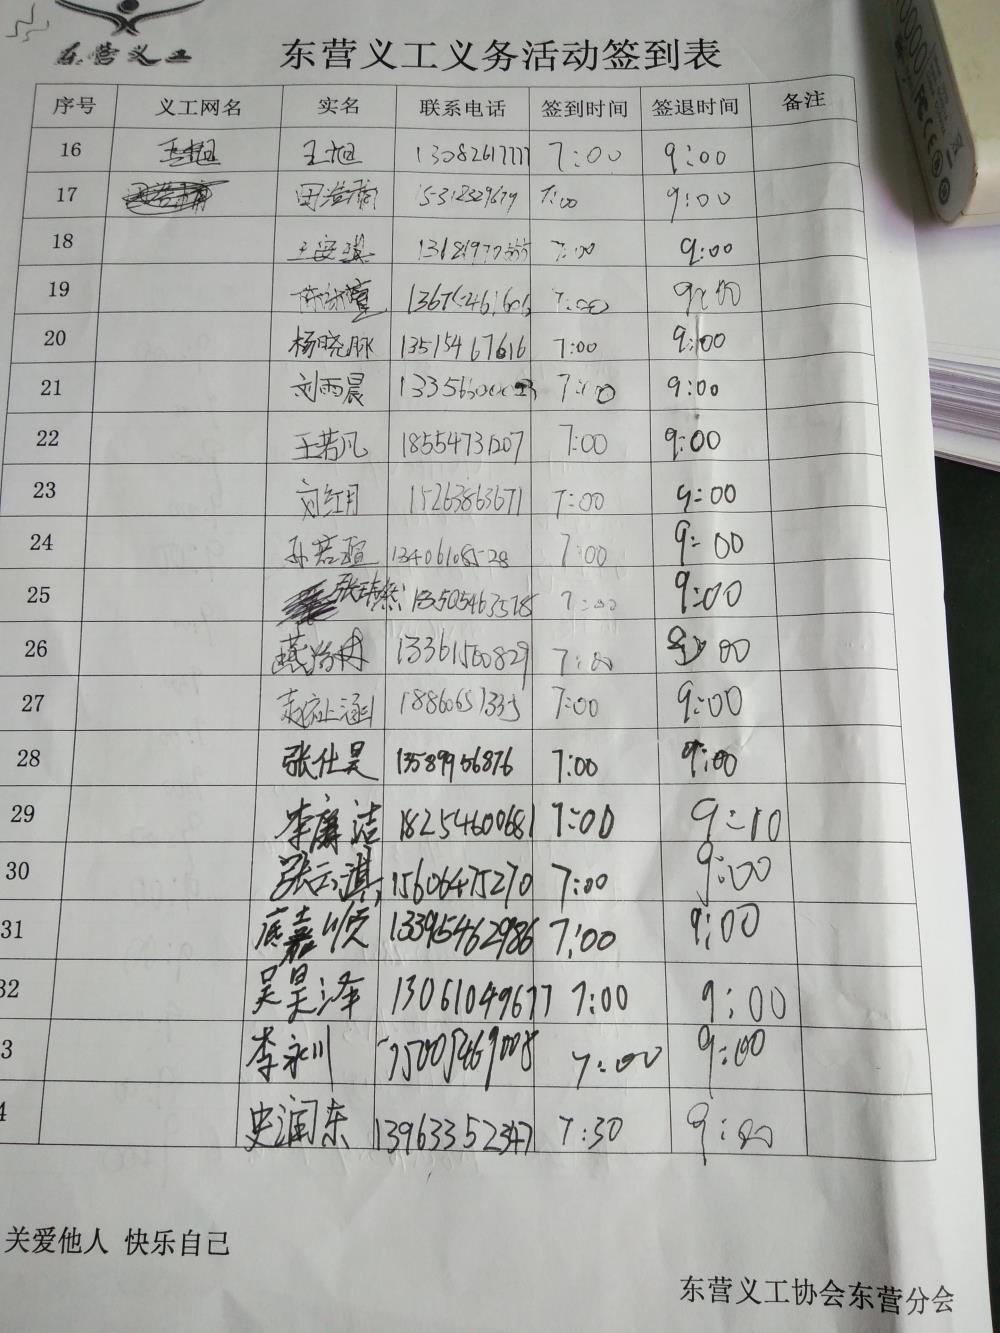 东营义工
东营义工义务活动签到表
序号 义工网名 实名 联系电话 签到时间 签退时间 备注
16 王旭 王旭 13082617777 7:00 9:00
17 7:00 9:00
18 王安琪 7:00 9:00
19 7:00 9:00
20 杨晓脉 13515467616 7:00 9:00
21 刘雨晨 7:00 9:00
22 王若凡 18554731207 7:00 9:00
23 刘红月 15263863671 7:00 9:00
24 孙若瑄 13406108528 7:00 9:00
25 13505463578 7:00 9:00
26 13361560829 7:00 9:00
27 18860651335 7:00 9:00
28 张仕昊 13589956876 7:00 9:00
29 李廉洁 18254600681 7:00 9:10
30 张云淇 15606475270 7:00 9:00
31 底嘉顺 13395462986 7:00 9:00
32 吴昊泽 13061049677 7:00 9:00
3 李永川 7:00 9:00
4 史润东 13963352347 7:30 9:00
关爱他人 快乐自己
东营义工协会东营分会